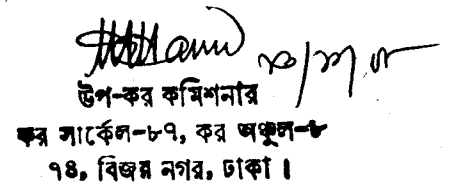 উপ-কর কমিশনার
কর সার্কেল-৮৭, কর অঞ্চল-৮
৭৪, বিজয় নগর, ঢাকা।